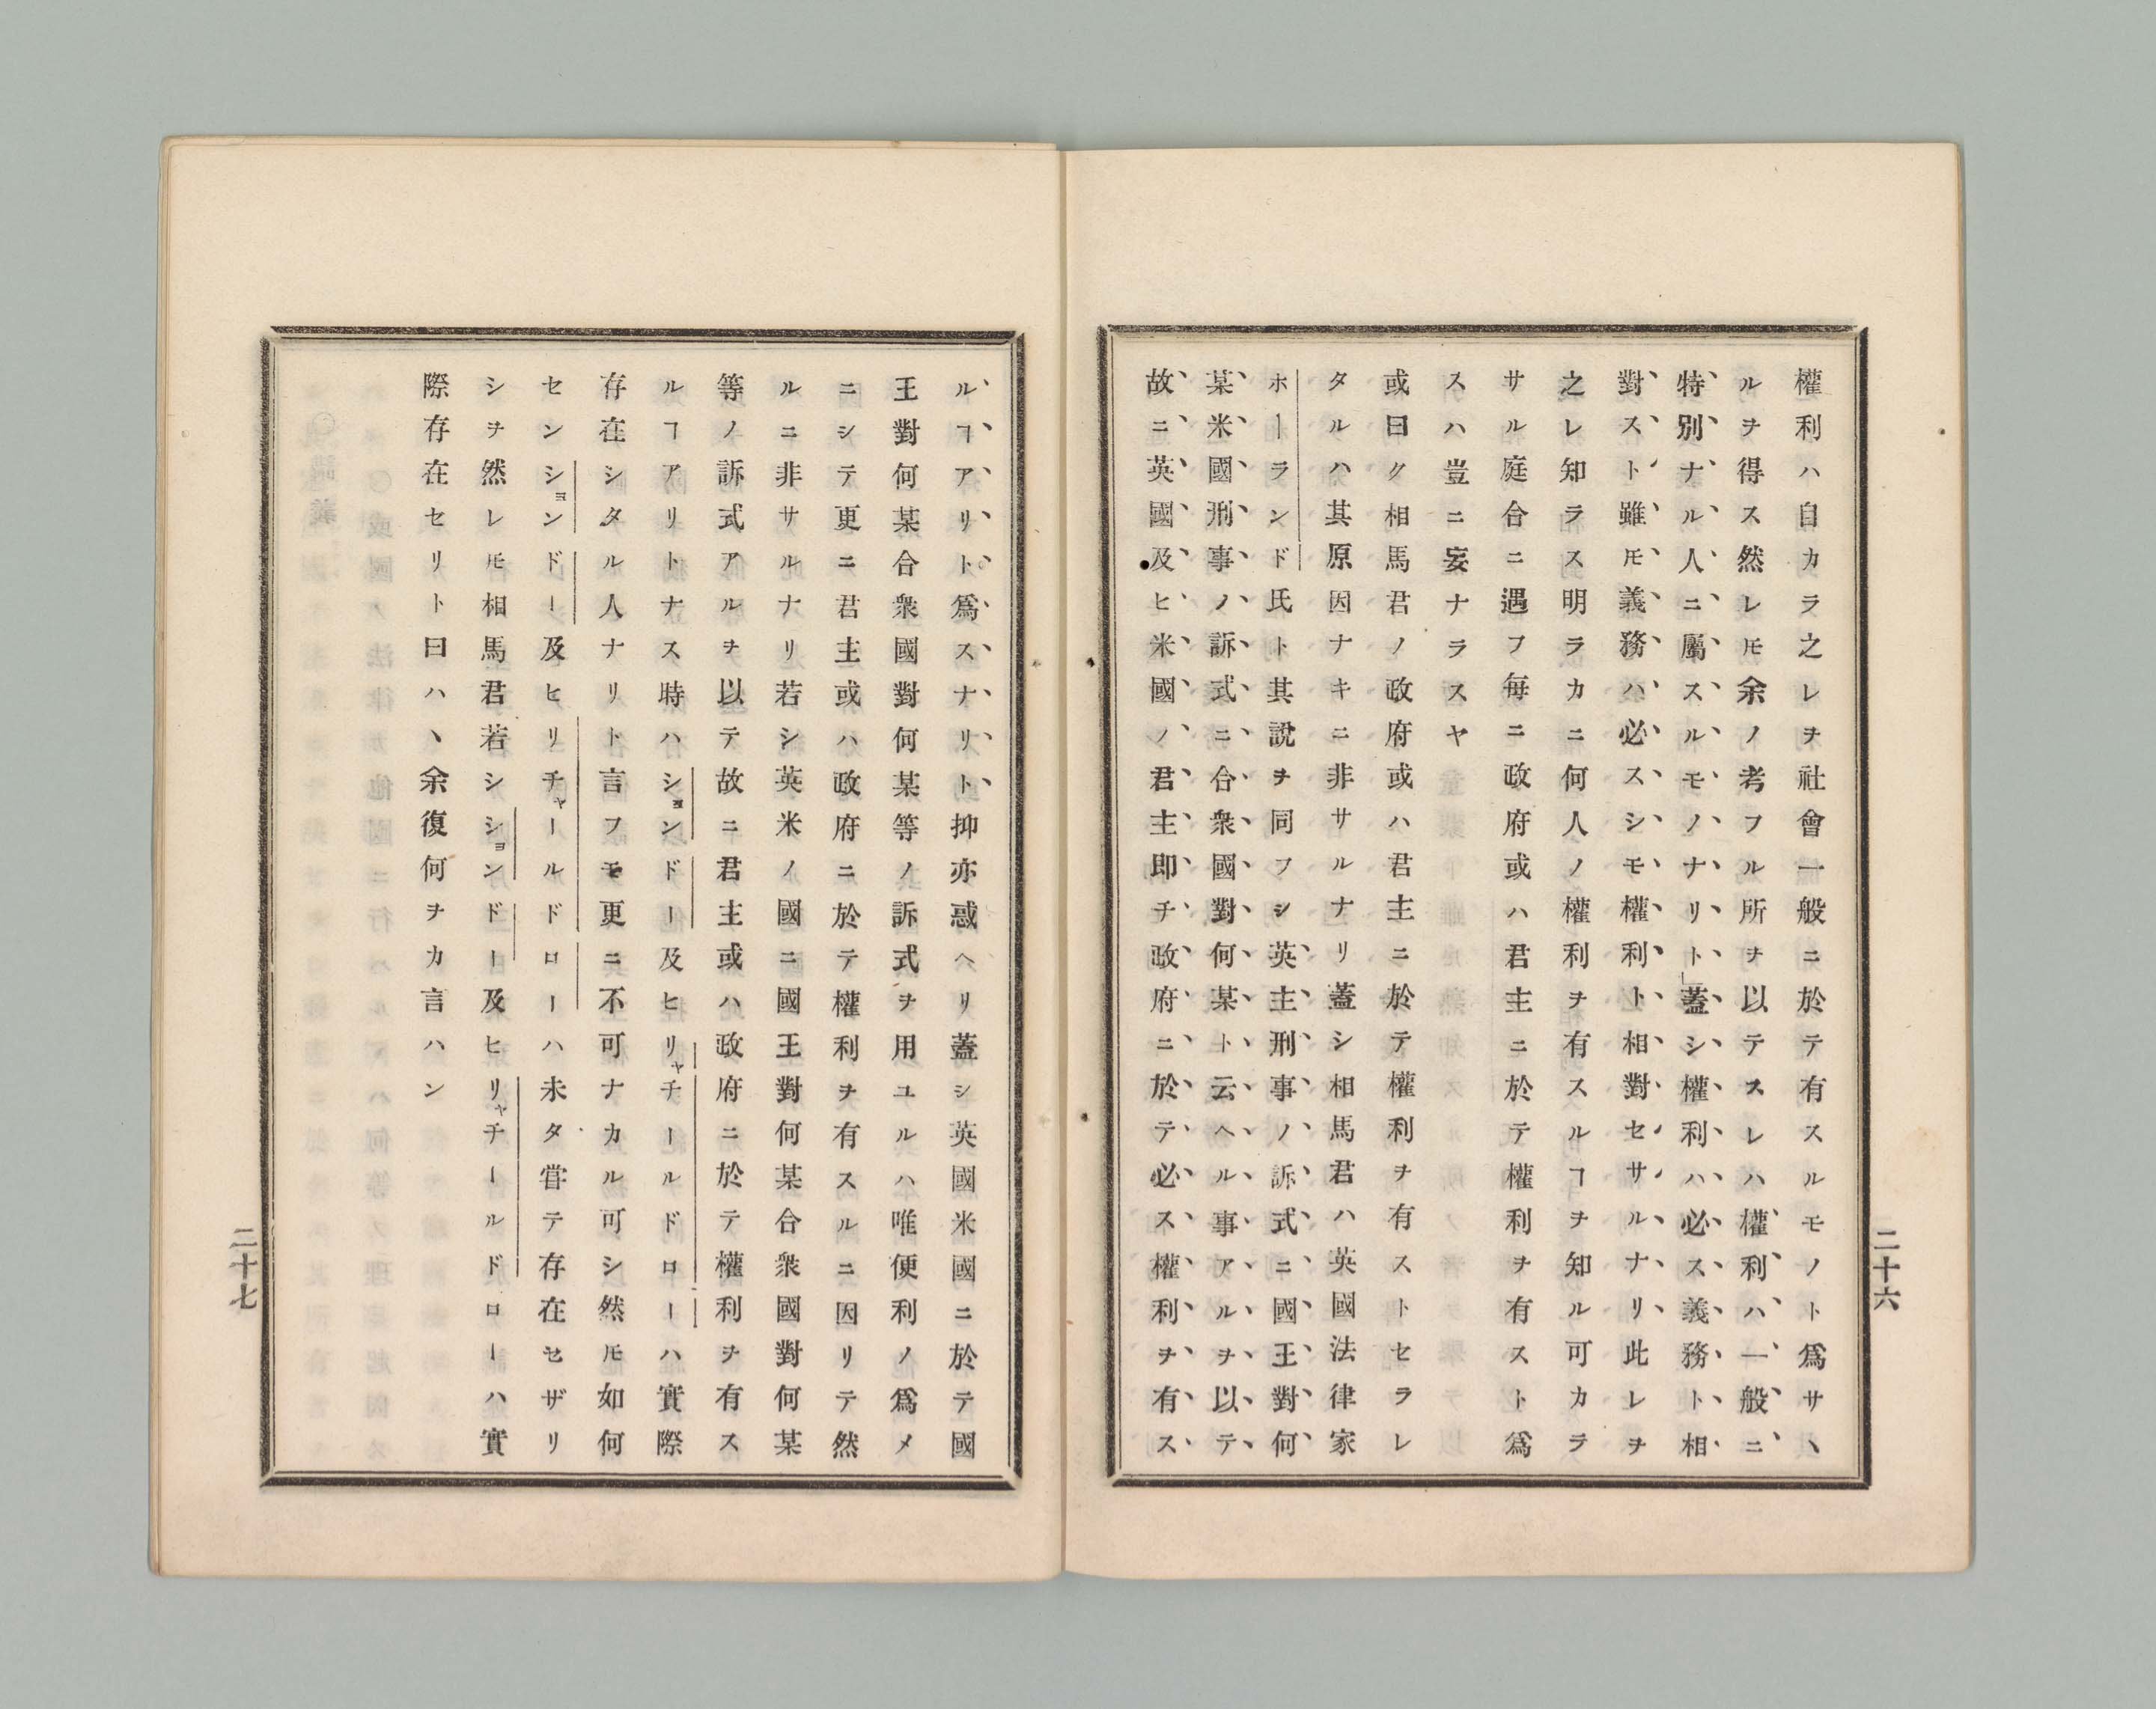 權利ハ自カラ之レヲ社會一般ニ於テ有スルモノト爲サヽ
ルヲ得ス然レ𪜈余ノ考フル所ヲ以テスレハ權利ハ一般ニ
特別ナル人ニ屬スルモノナリト」蓋シ權利ハ必ス義務ト相
對スト雖𪜈義務ハ必スシモ權利ト相對セサルナリ此レヲ
之レ知ラス明ラカニ何人ノ權利ヲ有スルヿヲ知ル可カラ
サル庭合ニ遇フ毎ニ政府或ハ君主ニ於テ權利ヲ有スト爲
スハ豈ニ妄ナラスヤ
或曰ク相馬君ノ政府或ハ君主ニ於テ權利ヲ有ストセラレ
タルハ其原因ナキニ非サルナリ蓋シ相馬君ハ英國法律家
ホーランド氏ト其說ヲ同フシ英主刑事ノ訴式ニ國王對何
某米國刑事ノ訴式ニ合衆國對何某ト云ヘル事アルヲ以テ
故ニ英國及ヒ米國ノ君主即チ政府ニ於テ必ス權利ヲ有ス
二十六
ルヿアリト爲スナリト抑亦惑ヘリ蓋シ英國米國ニ於テ國
王對何某合衆國對何某等ノ訴式ヲ用ユルハ唯便利ノ爲メ
ニシテ更ニ君主或ハ政府ニ於テ權利ヲ有スルニ因リテ然
ルニ非サルナリ若シ英米ノ國ニ國王對何某合衆國對何某
等ノ訴式アルヲ以テ故ニ君主或ハ政府ニ於テ權利ヲ有ス
ルヿアリトナス時ハションドー及ヒリチャールドローハ實際
存在シタル人ナリト言フモ更ニ不可ナカル可シ然𪜈如何
センションドー及ヒリチャールドローハ未タ甞テ存在セザリ
シヲ然レ𪜈相馬君若シションドー及ヒリチャールドローハ實
際存在セリト曰ハヽ余復何ヲカ言ハン
二十七